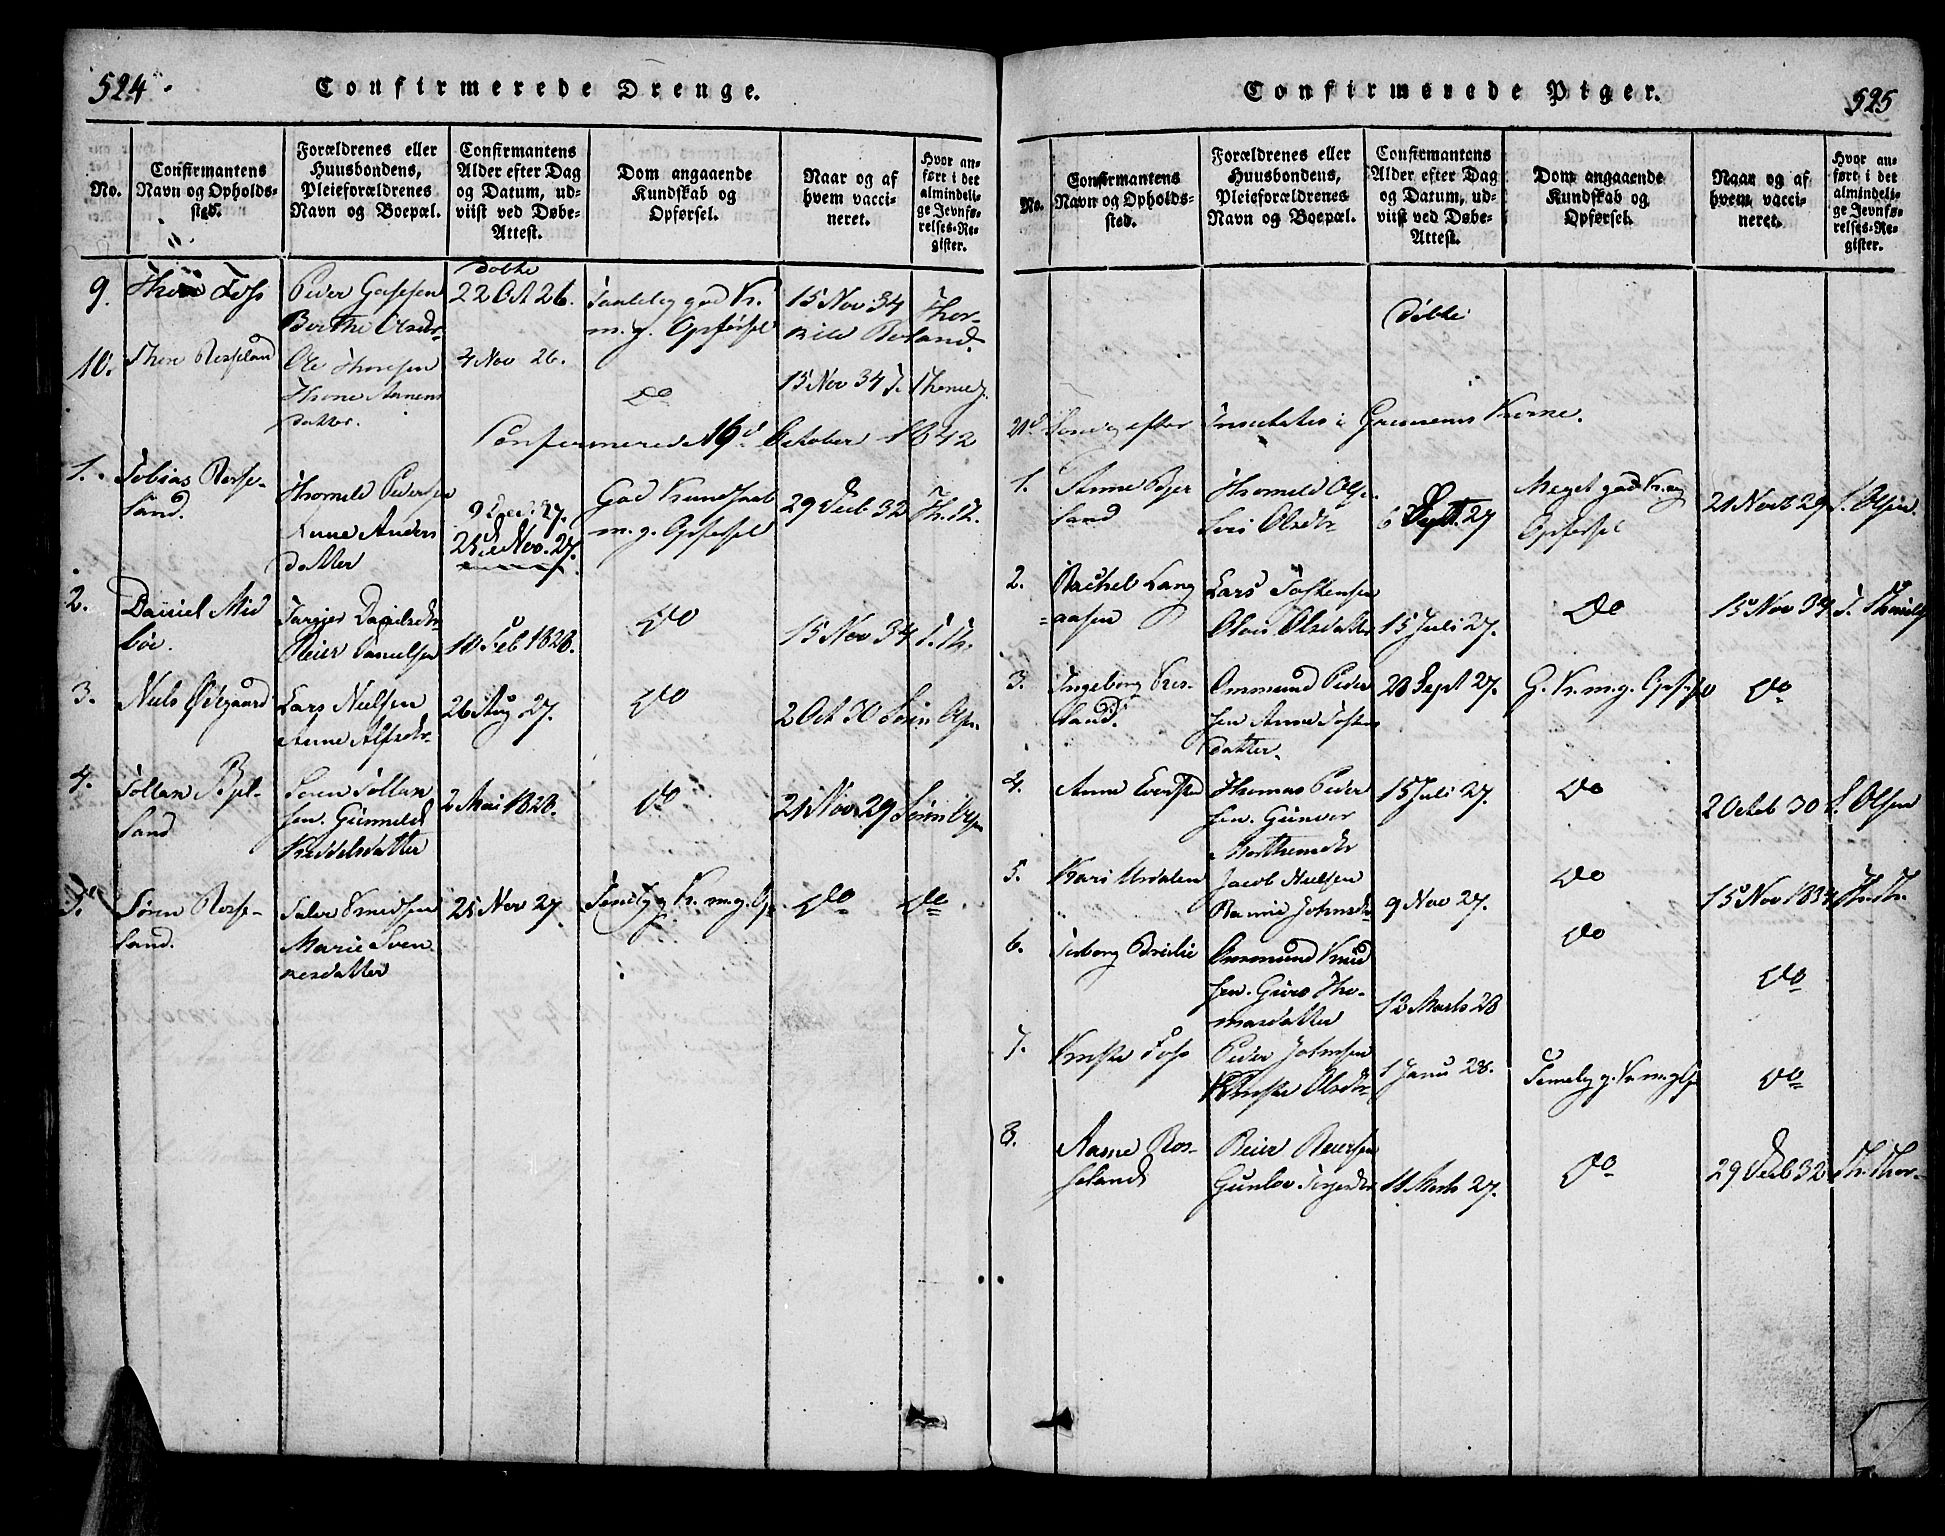 524.
Confirmerede Drenge.
No.
Confirmantens
Navn og Opholds-
sted.
Forældrenes eller
Huusbondens,
Pleieforældrenes
Navn og Boepæl.
Confirmantens
Alder efter Dag
og Datum, ud-
viist ved Døbe-
Attest.
Dom angaaende
Kundskab og
Opførsel.
Naar og af
hvem vacci-
neret.
Hvor an-
ført i det
almindeli-
ge Jevnfø-
relses-Re-
gister.
9.
Foss
Peder
Berthe Olsdtr
Døbte
22 Oct 26.
Taalelig god Kr.
m. g. Opførsel
15 Nov 34 Thor-
kild Roland.
10.
Thore Rosseland
Ole Thoresen
Throne
datter.
4 Nov 26.
Do
15 Nov 34 T.
Confirmerede 16d October 1842
1.
Tobias Rosse-
land.
Thomeld Pedersen
Anne Anders
datter
27.
25 Nov. 27.
God Kundskab
m. g. Opførsel
29 Deb 32 Th. Th.
2.
Daniel Mid
bøe.
Reier Danielsen
10 Feb 1828.
Do
15 Nov 34 T. Th.
3.
Niels Ødegaard
Lars Nielsen
Anne Alfsdtr
26 Aug. 27.
Do
2 Oct 30 Sørin Ols.
4.
Tollan
land
Søren Tollan
sen. Gunnild
Kieddelsdatter
2 Mai 1828.
Do
21 Nov. 29 Sørin Ols
5.
Søren Rosse-
land.
Marie Sven
kesdatter
25 Nov 27.
Temelig g. Kr. m. g. Op
Do
Do
525
Confirmerede Piger.
No.
Confirmantens
Navn og Opholds-
sted.
Forældrenes eller
Huusbondens,
Pleieforældrenes
Navn og Boepæl.
Confirmantens
Alder efter Dag
og Datum, ud-
viist ved Døbe-
Attest.
Dom angaaende
Kundskab og
Opførsel.
Naar og af
hvem vacci-
neret.
Hvor an-
ført i det
almindeli-
ge Jevnfø-
relses-Re-
gister.
Døbte
21d Søndag efter Trinitatis i Kirke.
1.
Anne
land
Thomeld Ols.
Siri Olsdtr
6 Sept. 27
Meget god Kr. og
Opførsel
21 Novb 29 S. Olsen.
2.
Rachel Lang
=aasen
Lars Tostensen
Olsdatter
15 Juli 27.
Do
15 Nov 34
3.
Ingeborg
land.
Ommund Peder
sen Anne Tostens
datter.
20 Sept 27.
G. Kr. m. g. Opførsel
Do
4.
Anne
Thomas Peder
sen. Gunvor
15 Juli 27.
Do
2 Octb 30 S. Olsen
5.
Kari Urdalen
Jacob Nielsen
Johnsdtr
9 Nov 27.
Do
15 Nov 1834 Th. Th.
6.
Ommund Knud
sen. Guro Tho-
masdatter
12 Marts 28
Do
Do
7.
Foss
Peder Johnsen
Olsdtr
1 Janu 28.
Temelig g. Kr. m. g. Op
Do
8.
Aasne Ros-
seland
Reier Reiersen
11 Marts 27.
Do
29 Deb 32 Th. Thor-